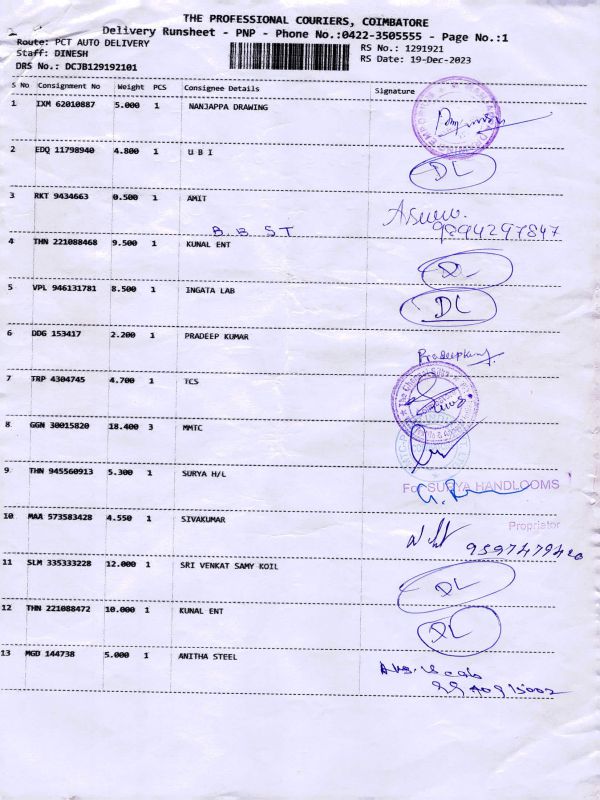 THE PROFESSIONAL COURIERS, COIMBATORE
Delivery Runsheet - PNP - Phone No.:0422-3505555 - Page No.:1
Route: PCT AUTO DELIVERY RS No.: 1291921
Staff: DINESH RS Date: 19-Dec-2023
DRS No.: DCJB129192101
S No Consignment No Weight PCS Consignee Details Signature
1 IXM 62010887 5.000 1 NANJAPPA DRAWING
2 EDQ 11798940 4.800 1 U B I DL
3 RKT 9434663 0.500 1 AMIT
9894297847
B. B. S T
4 THN 221088468 9.500 1 KUNAL ENT DL
5 VPL 946131781 8.500 1 INGATA LAB DL
6 DDG 153417 2.200 1 PRADEEP KUMAR
7 TRP 4304745 4.700 1 TCS
8 GGN 30015820 18.400 3 MMTC
9 THN 945560913 5.300 1 SURYA H/L For SURYA HANDLOOMS
Propriator
10 MAA 573583428 4.550 1 SIVAKUMAR
11 SLM 335333228 12.000 1 SRI VENKAT SAMY KOIL DL
12 THN 221088472 10.000 1 KUNAL ENT DL
13 MGD 144738 5.000 1 ANITHA STEEL